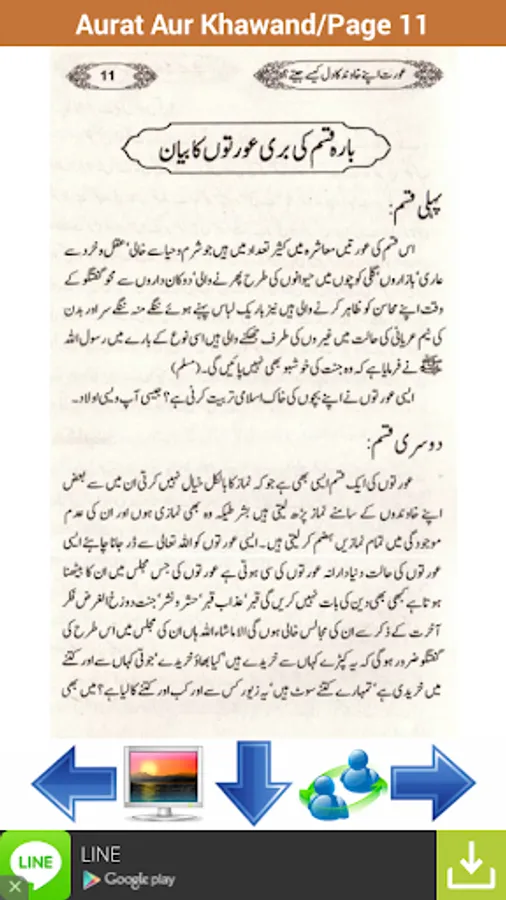 Aurat Aur Khawand/Page 11
11
عورت اپنے خاوند کا دل کیسے جیتے؟
بارہ قسم کی بری عورتوں کا بیان
پہلی قسم:
اس قسم کی عورتیں معاشرہ میں کثیر تعداد میں ہیں جو شرم و حیا سے خالی‘ عقل و خرد سے
عاری‘ بازاروں‘ گلی کوچوں میں حیوانوں کی طرح پھرنے والی‘ دوکان داروں سے محو گفتگو کے
وقت اپنے محاسن کو ظاہر کرنے والی ہیں نیز باریک لباس پہنے ہوئے ننگے منہ ننگے سر اور بدن
کی نیم عریانی کی حالت میں غیروں کی طرف جھکنے والی ہیں اسی نوع کے بارے میں رسول اللہ
ﷺ نے فرمایا ہے کہ وہ جنت کی خوشبو بھی نہیں پائیں گی۔ (مسلم)
ایسی عورتوں نے اپنے بچوں کی خاک اسلامی تربیت کرنی ہے؟ جیسی آپ ویسی اولاد۔
دوسری قسم:
عورتوں کی ایک قسم ایسی بھی ہے جو کہ نماز کا بالکل خیال نہیں کرتی ان میں سے بعض
اپنے خاوندوں کے سامنے نماز پڑھ لیتی ہیں بشرطیکہ وہ بھی نمازی ہوں اور ان کی عدم
موجودگی میں تمام نمازیں ہضم کر لیتی ہیں۔ ایسی عورتوں کو اللہ تعالی سے ڈر جانا چاہئے ایسی
عورتوں کی حالت دنیادارانہ عورتوں کی سی ہوتی ہے عورتوں کی جس مجلس میں ان کا بیٹھنا
ہوتا ہے کبھی بھی دین کی بات نہیں کریں گی قبر‘ عذاب قبر‘ حشر و نشر‘ جنت دوزخ الغرض فکر
آخرت کے ذکر سے ان کی مجالس خالی ہوں گی الا ماشاء اللہ ہاں ان کی مجلس میں اس طرح کی
گفتگو ضرور ہو گی کہ یہ کپڑے کہاں سے خریدے ہیں‘ کیا بھاؤ خریدے‘ جوتی کہاں سے اور کتنے
میں خریدی ہے‘ تمہارے کتنے سوٹ ہیں‘ یہ زیور کس سے اور کب اور کتنے کا لیا ہے؟ میں بھی
LINE
LINE
Google play